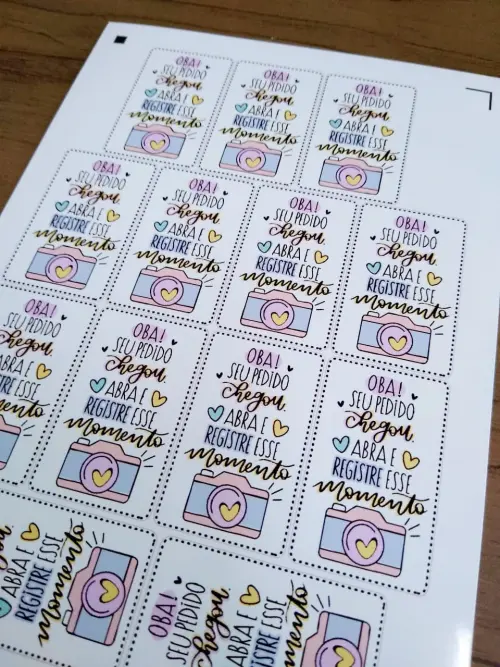 OBA!
SEU PEDIDO
chegou,
ABRA E
REGISTRE ESSE
momento
OBA!
SEU PEDIDO
chegou,
ABRA E
REGISTRE ESSE
momento
OBA!
SEU PEDIDO
chegou,
ABRA E
REGISTRE ESSE
momento
OBA!
SEU PEDIDO
chegou,
ABRA E
REGISTRE ESSE
momento
OBA!
SEU PEDIDO
chegou,
ABRA E
REGISTRE ESSE
momento
OBA!
SEU PEDIDO
chegou,
ABRA E
REGISTRE ESSE
momento
OBA!
SEU PEDIDO
chegou,
ABRA E
REGISTRE ESSE
momento
OBA!
PEDIDO
E
ESSE
OBA!
SEU PEDIDO
chegou,
ABRA E
REGISTRE ESSE
momento
OBA!
SEU PEDIDO
chegou,
ABRA E
REGISTRE ESSE
momento
OBA!
SEU PEDIDO
chegou,
ABRA E
REGISTRE ESSE
momento
ABRA E
REGISTRE ESSE
momento
OBA!
SEU PEDIDO
chegou,
ABRA E